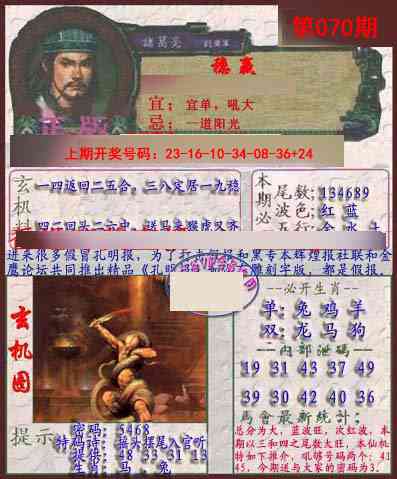 第070期
諸葛亮
稳赢
宜；宜单，吼大
忌；一道阳光
上期开奖号码：23-16-10-34-08-36+24
玄机
一四返回二五合，三八定居一九稳
本期必
尾数:134689
波色:红 蓝
进来很多假冒孔明报，为了打
和黑专本辉煌报社联和金
鹰论坛共同推出精品《孔
雕刻字版，都是假报
玄机图
必开生肖
单:兔 鸡 羊
双:龙 马 狗
内部泄码
19 31 43 37 49
39 30 42 40 36
馬會最新統計:
总分为大，蓝波旺，次红波，本
期以三和四之尾数大旺，本仙机
特如下推介，吼够号码两个: 41
45，今期送与大家的密码为3.
提示
密码: 5468
特码诗: 接头摆尾入官听
提供: 48 33 31 13
生肖: 马 兔